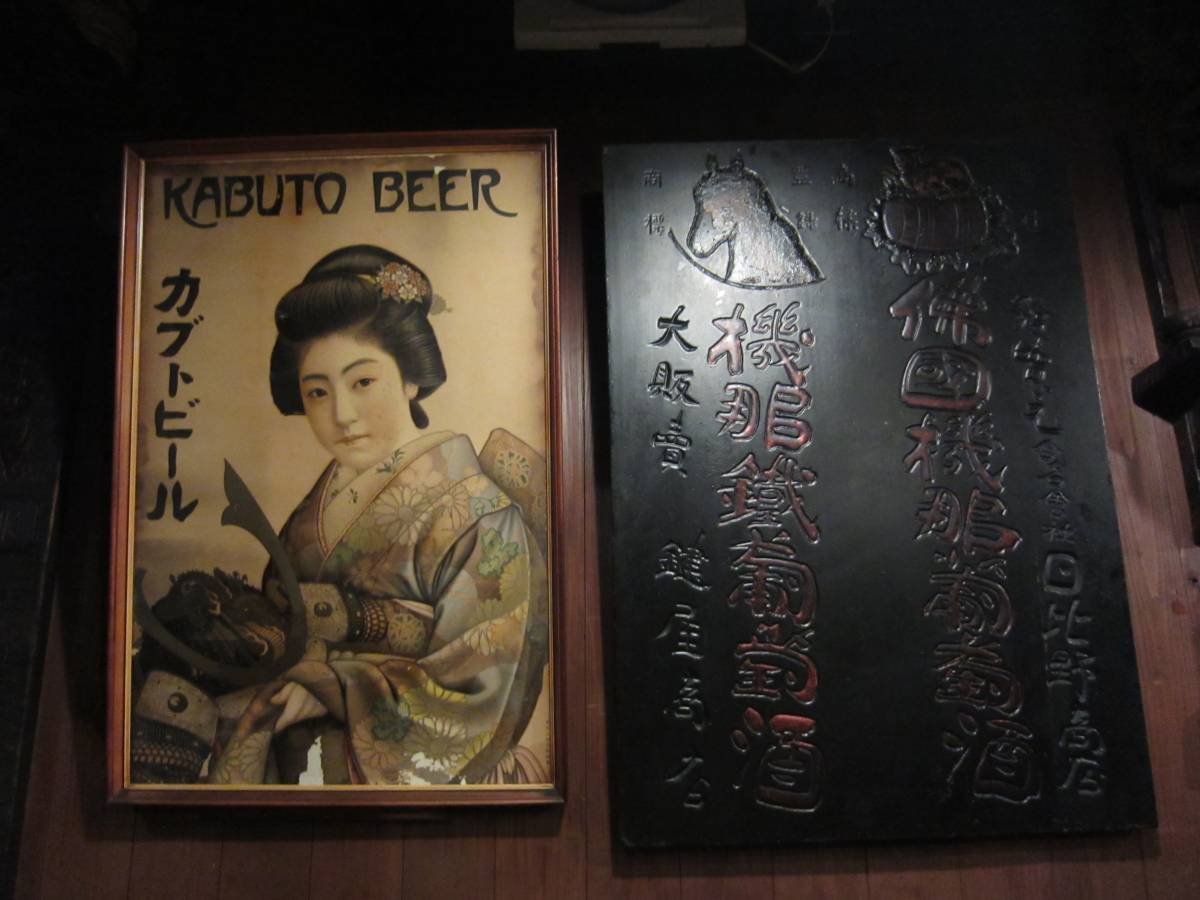 KABUTO BEER
カブトビール
商標
登録
商標
佛國機那葡萄酒
機那鐵葡萄酒
大販賣 鍵屋商店